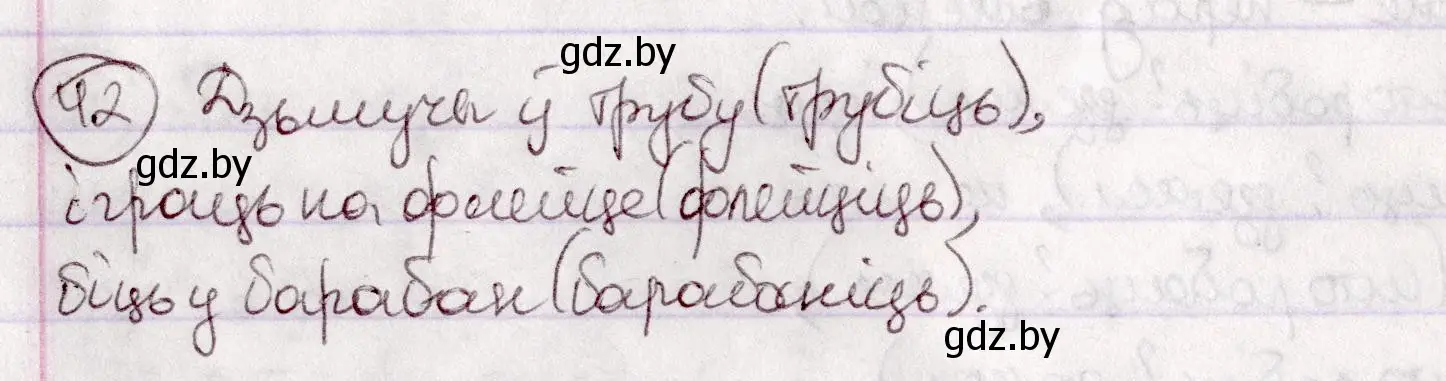 gdz.by
42 Дзьмучы ў трубу (трубіць),
gdz.by
іграць на флейце (флейціць),
біць у барабан (барабаніць).
gdz.by